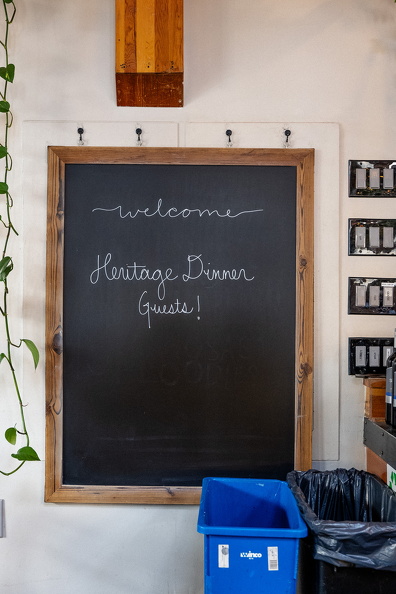 welcome
Heritage Dinner
Guests!
winco